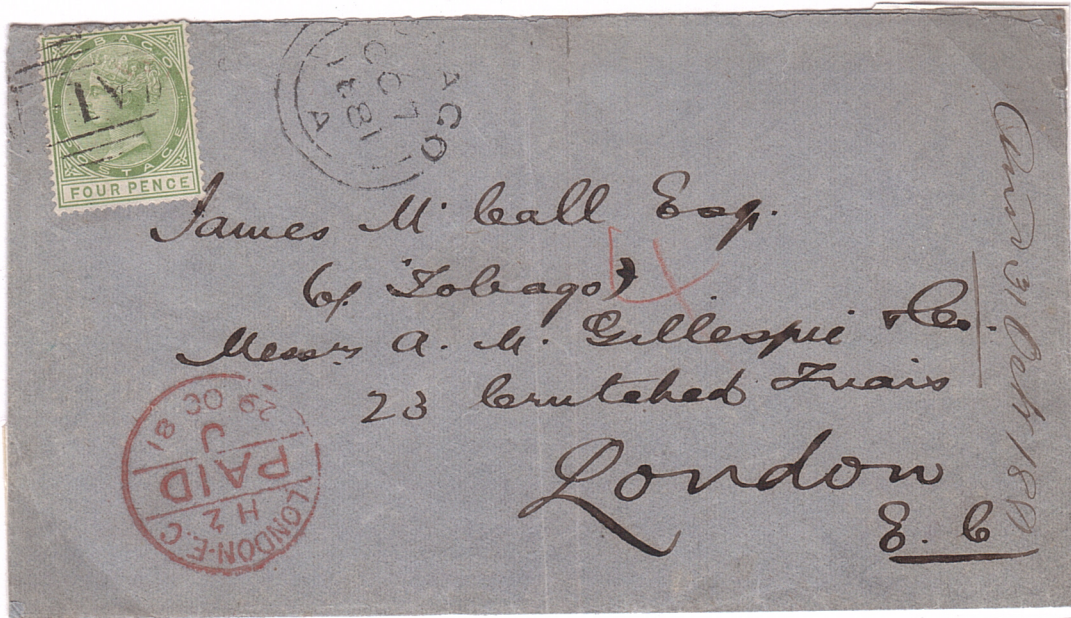 TOBAGO
POSTAGE
FOUR PENCE
A14
AGO
A
OC 7
1881
James Mc Call Esq.
(of Tobago)
4
Messrs A. M. Gillespie & Co.
23 Crutched Friars
London
E. C
LONDON-E.C
H 2
PAID
J
29 OC 81
31 Octr 1881